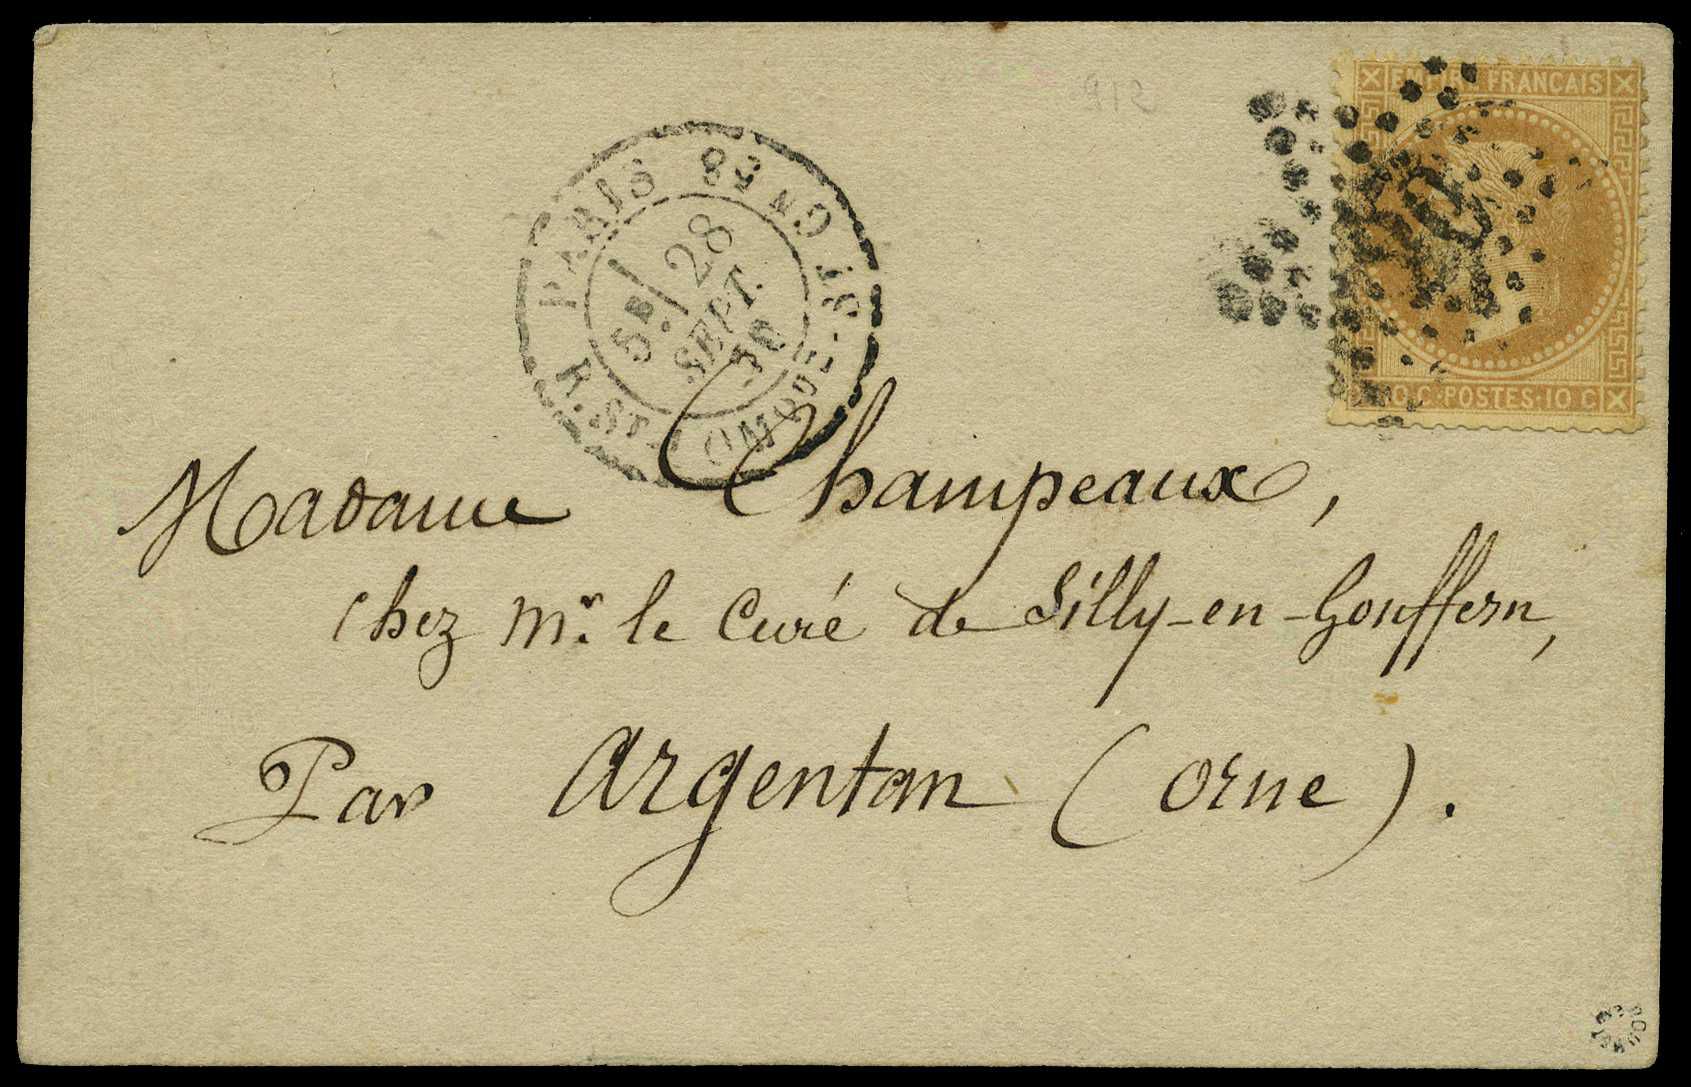 912
EMPIRE FRANÇAIS
10 C. POSTES. 10 C
PARIS
R. ST DOMQUE-ST GN 82
5E/ 28
SEPT.
70
Madame Champeaux,
Chez Mr. le Curé de Silly-en-Gouffern,
Par Argentan (Orne).